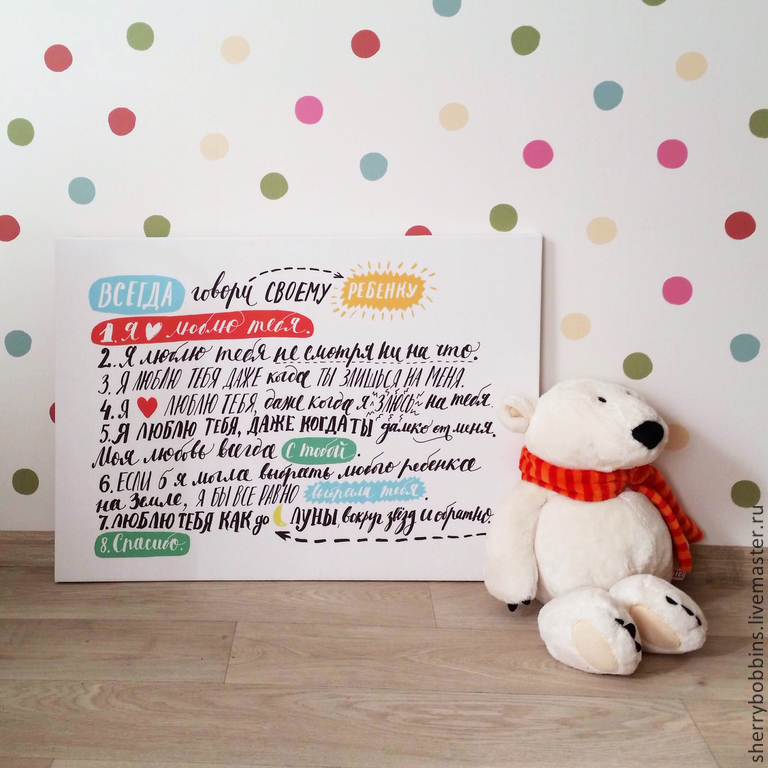 ВСЕГДА говори СВОЕМУ РЕБЕНКУ
1. Я люблю тебя.
2. Я люблю тебя не смотря ни на что.
3. Я ЛЮБЛЮ ТЕБЯ ДАЖЕ когда ТЫ ЗЛИШЬСЯ НА МЕНЯ.
4. Я ЛЮБЛЮ ТЕБЯ, даже когда я ЗЛЮСЬ на тебя.
5. Я ЛЮБЛЮ ТЕБЯ, ДАЖЕ КОГДА ТЫ далеко от меня.
Моя любовь всегда С тобой.
6. ЕСЛИ б я могла выбрать любого ребенка
на Земле, Я БЫ ВСЕ РАВНО выбрала тебя.
7. ЛЮБЛЮ ТЕБЯ КАК до ЛУНЫ, вокруг звёзд и обратно.
8. Спасибо.
sherrybobbins.livemaster.ru